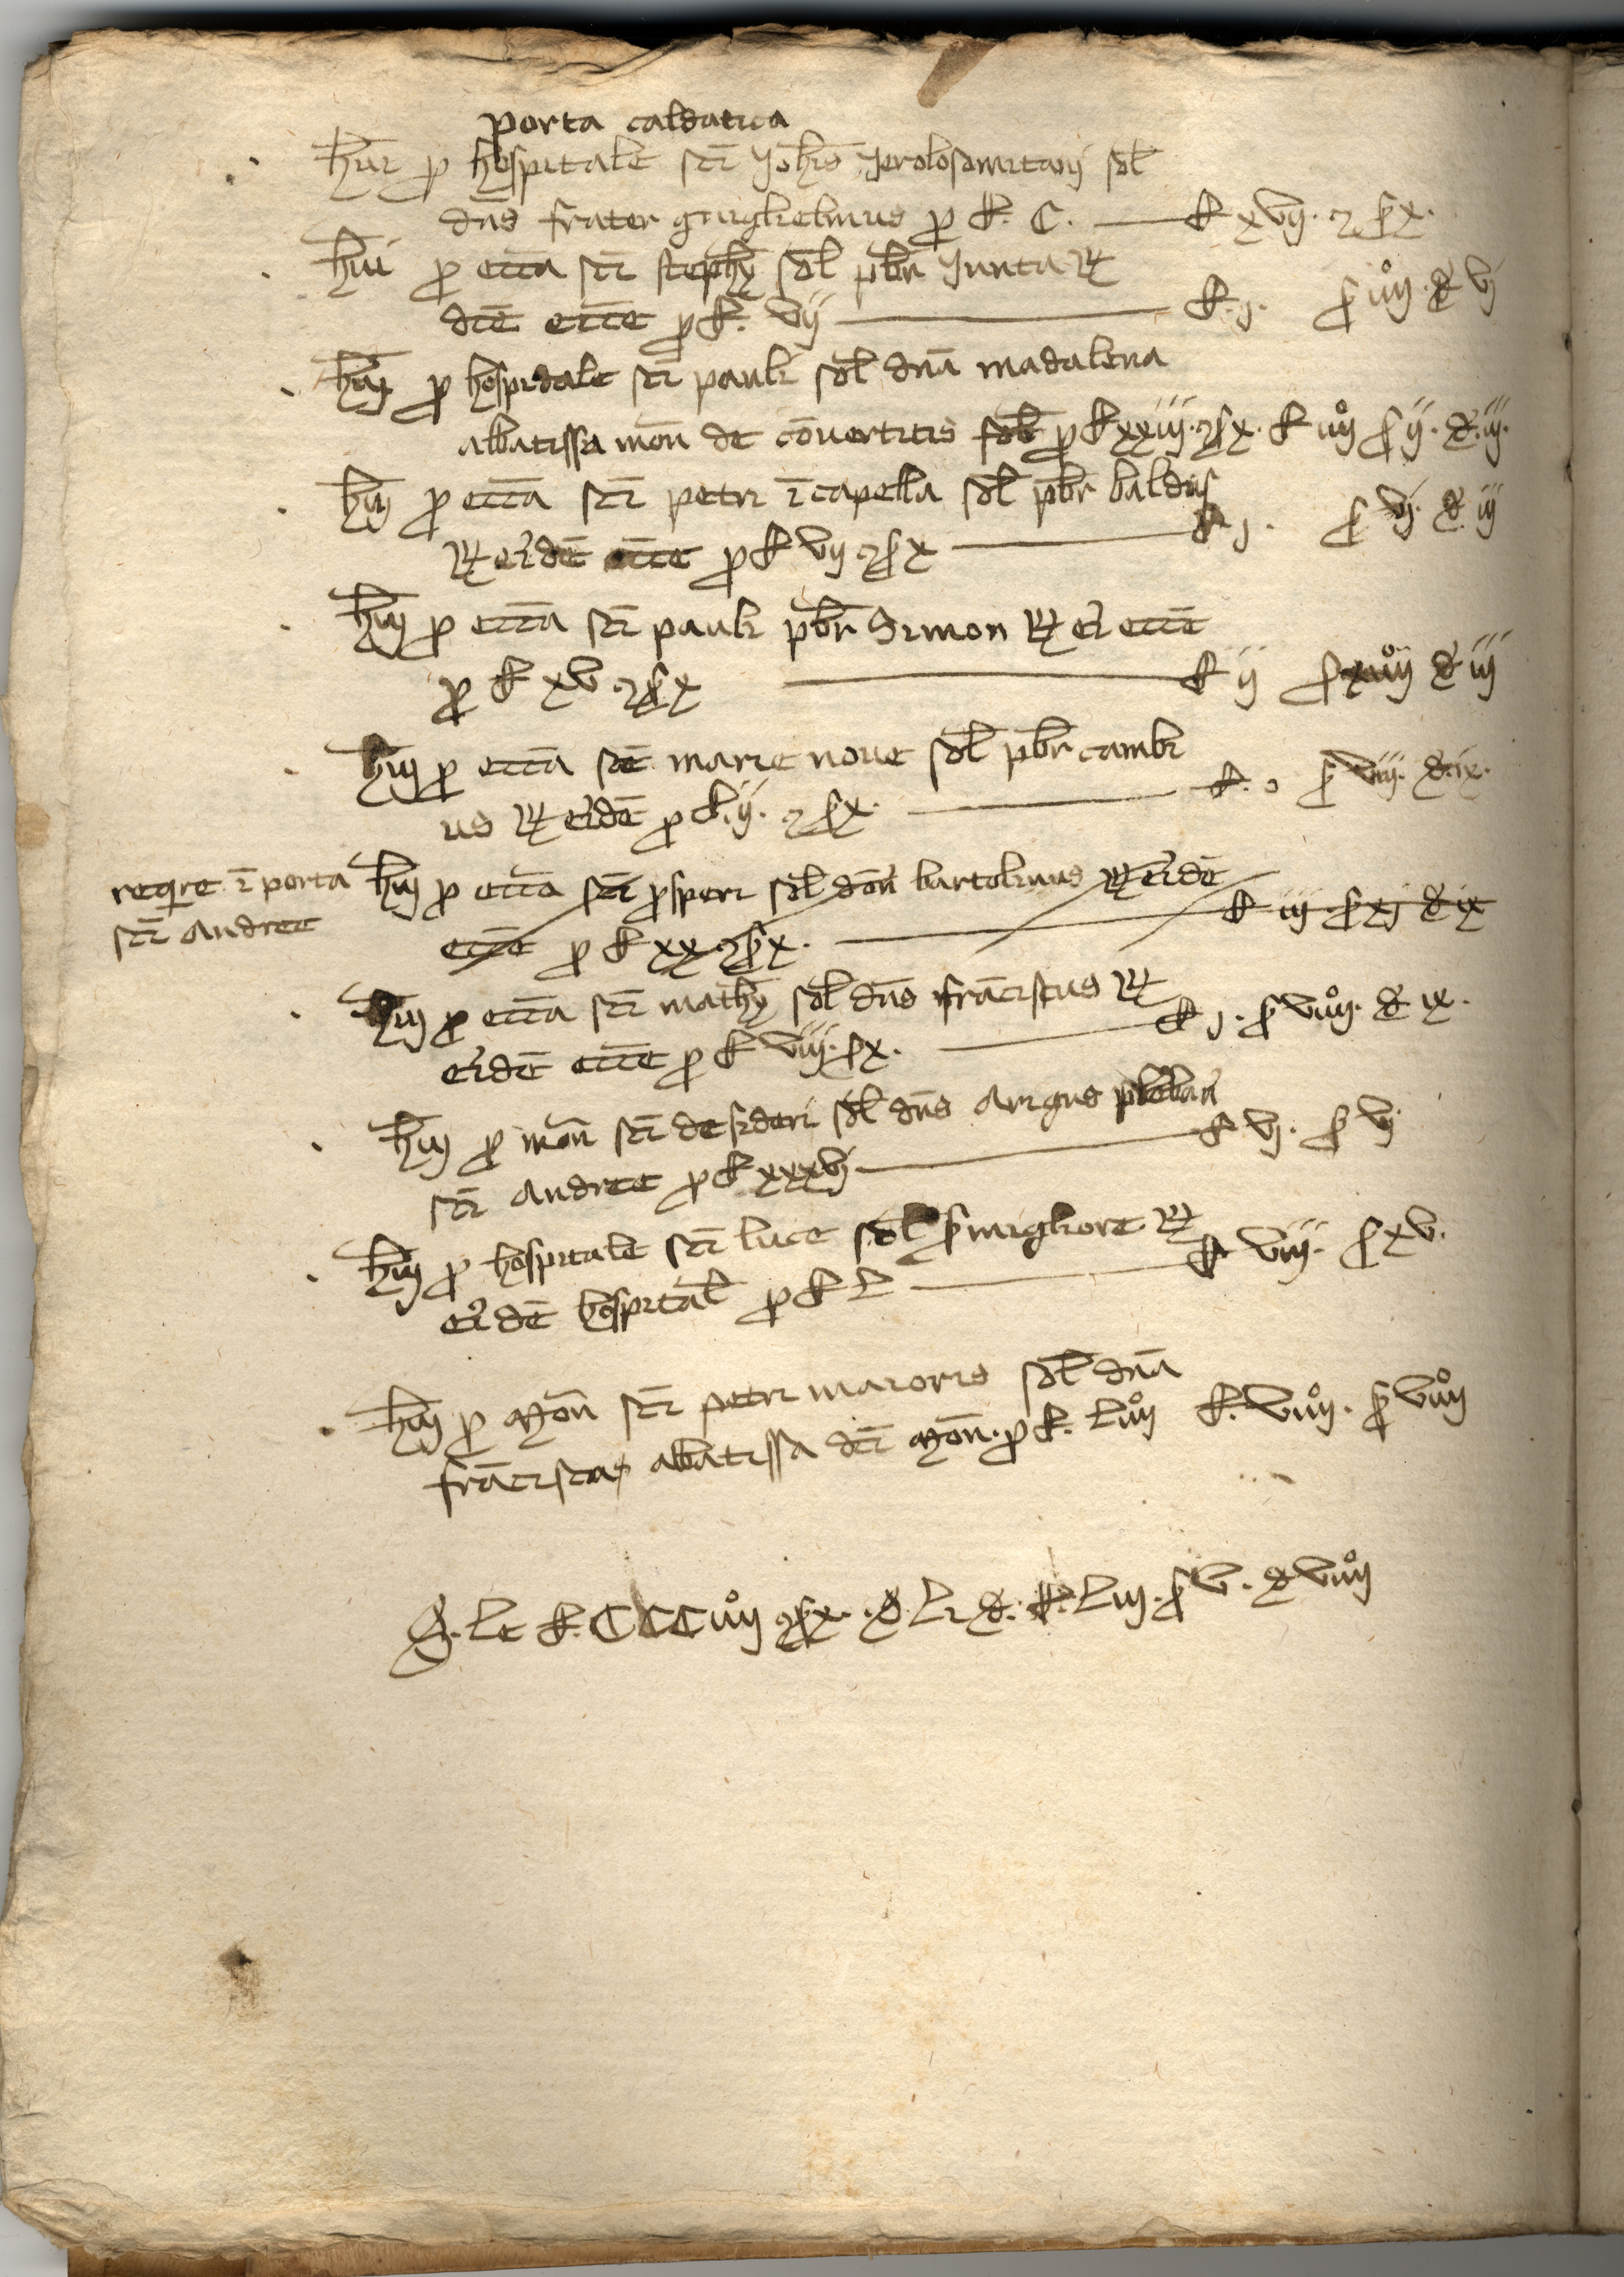 porta caldatica
hui p hospitale sci Johis Jerolosomitanj sol
dns frater guiglielmus p £. C. — £ xvij. 7 ſ x.
hui p eccia sci stephy sol pbr Junta R
dce eccie p £. vij — £. j. ſ iiij. d vj
huj p hospidale sci pauli sol dna madalena
abbatissa mon de covertitis sol p £ xxiij. 7 ſ x. £ iiij ſ ij. d. iij.
huj p eccia sci petri i capella sol pbr baldus
R eide eccie p £ vij 7 ſ x — £ j. ſ vj. d iij
huj p eccia sci pauli pbr Simon R ei eccie
p £ xv 7 ſ x — £ ij ſ xiiij d iij
huj p eccia sce marie nove sol pbr cambi
us R eide p £. ij. 7 ſ x. — £. 0 ſ viij. d. ix.
reqre i porta
sci Andree
huj p eccia sci psperi sol don bartolinus R eide
eccie p £ xx 7 ſ x. — £ iij ſ xj d ix
huj p eccia sci mathy sol dns francischus R
eide eccie p £ viij. ſ x. — £ j. ſ viiij. d ix.
huj p mon sci desideri sol dns Arrigus pleban
sci Andree p £ xxxvj — £ vj. ſ vj
huj p hospitale sci luce sol migliore R
eide hospital p £ L — £ viij. ſ xv.
huj p mon sci petri maioris sol dna
francisca abbatissa dci mon. p £. Liiij £. viiij. ſ viiij
S. Le £. CCCiiij 7 ſ x. d. Li d. £. Liij. ſ v. d viiij